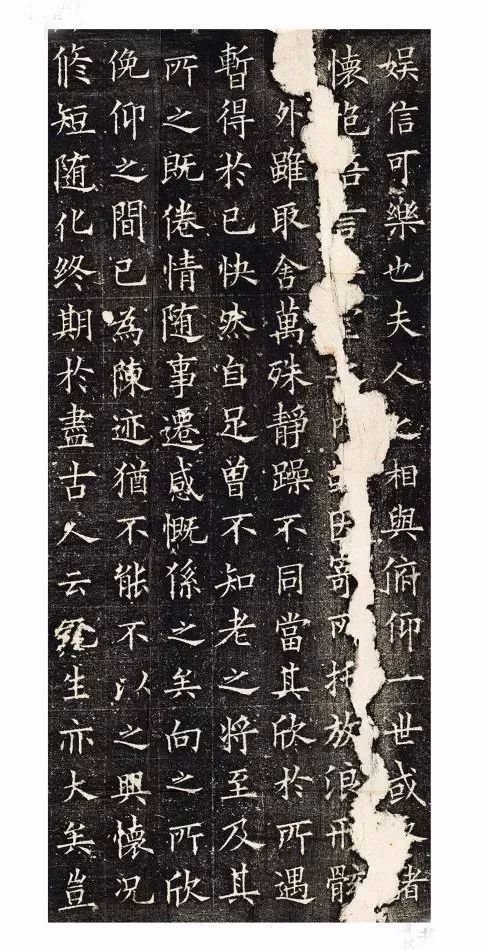 娱信可樂也夫人之相與俯仰一世或
懷抱言内或因寄所托放浪形骸
外雖取舍萬殊靜躁不同當其欣於所遇
暫得於己快然自足曾不知老之将至及其
所之既倦情随事遷感慨係之矣向之所欣
俛仰之間已為陳迹猶不能不以之興懷况
修短随化终期於盡古人云死生亦大矣豈